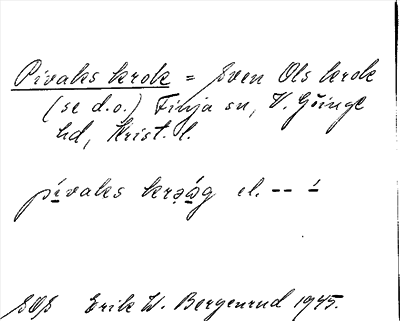 Pivaks krok = Sven Ols krok
(se d.o.) Finja sn, V. Göinge
hd, Krist. l.
pívaks krǫǻg el. -- í
SOS Erik W. Bergenrud 1945.